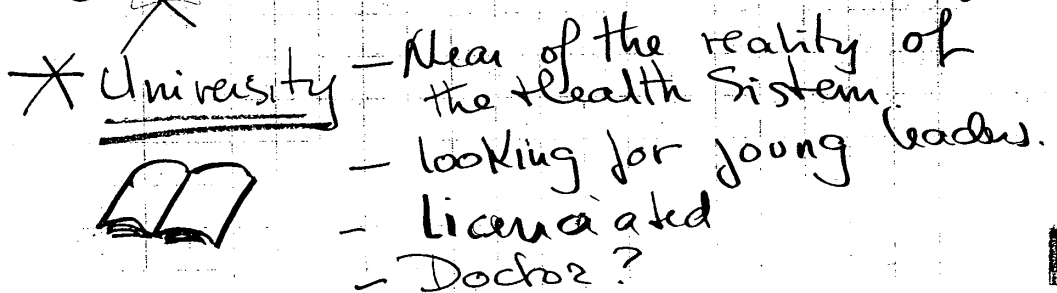 * University - Near of the reality of
the Health Sistem.
- looking for joung leaders.
- Licenciated
- Doctor?